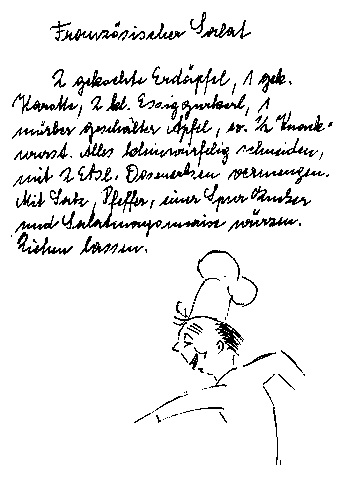 Französischer Salat
2 gekochte Erdäpfel, 1 gek.
Karotte, 2 kl. Essiggurkerl, 1
mürber geschälter Apfel, ev. 1/2 Knack-
wurst. Alles kleinwürfelig schneiden,
mit 2 Etsl. Dosenerbsen vermengen.
Mit Salz, Pfeffer, einer Spur Zucker
und Salatmayonnaise würzen.
Ziehen lassen.